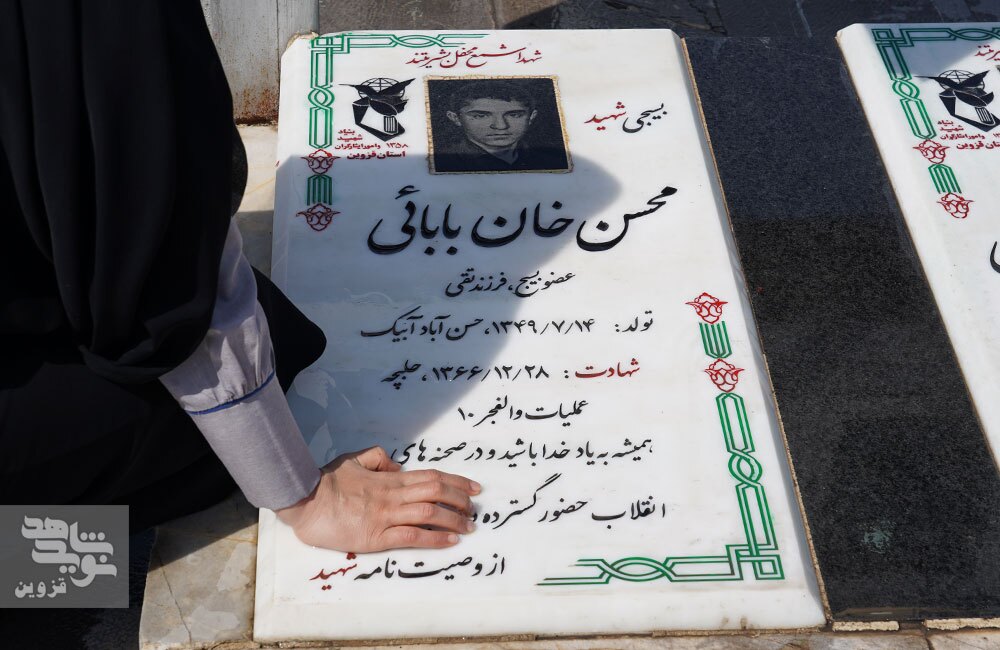 شهدا شمع محفل بشریتند
بنیاد
شهید
وامور ایثارگران ۱۳۵۸
استان قزوین
بسیجی شهید
محسن خان بابائی
عضو بسیج، فرزند تقی
تولد: ۱۳۴۹/۷/۱۴، حسن آباد آبیک
شهادت: ۱۳۶۶/۱۲/۲۸، حلبچه
عملیات والفجر ۱۰
همیشه به یاد خدا باشید و در صحنه های
انقلاب حضور گسترده
از وصیت نامه شهید
بنیاد
شهید
وامور ایثارگران ۱۳۵۸
استان قزوین
نوید شاهد
قزوین